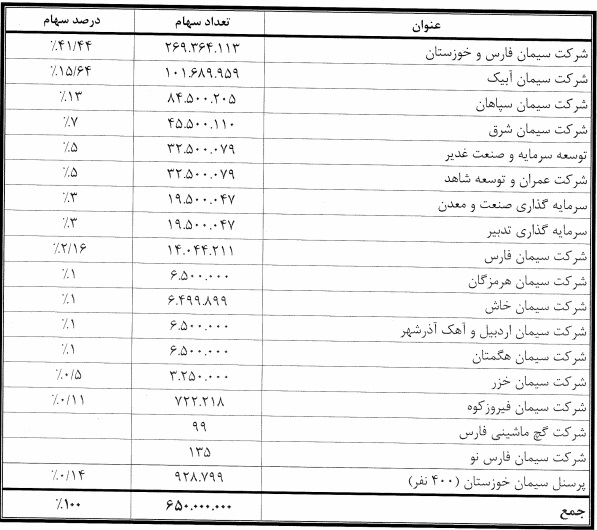 عنوان	تعداد سهام	درصد سهام
شرکت سیمان فارس و خوزستان	۲۶۹.۳۶۴.۱۱۳	٪۴۱/۴۴
شرکت سیمان آبیک	۱۰۱.۶۸۹.۹۵۹	٪۱۵/۶۴
شرکت سیمان سپاهان	۸۴.۵۰۰.۲۰۵	٪۱۳
شرکت سیمان شرق	۴۵.۵۰۰.۱۱۰	٪۷
توسعه سرمایه و صنعت غدیر	۳۲.۵۰۰.۰۷۹	٪۵
شرکت عمران و توسعه شاهد	۳۲.۵۰۰.۰۷۹	٪۵
سرمایه گذاری صنعت و معدن	۱۹.۵۰۰.۰۴۷	٪۳
سرمایه گذاری تدبیر	۱۹.۵۰۰.۰۴۷	٪۳
شرکت سیمان فارس	۱۴.۰۴۴.۲۱۱	٪۲/۱۶
شرکت سیمان هرمزگان	۶.۵۰۰.۰۰۰	٪۱
شرکت سیمان خاش	۶.۴۹۹.۸۹۹	٪۱
شرکت سیمان اردبیل و آهک آذرشهر	۶.۵۰۰.۰۰۰	٪۱
شرکت سیمان هگمتان	۶.۵۰۰.۰۰۰	٪۱
شرکت سیمان خزر	۳.۲۵۰.۰۰۰	٪۰/۵
شرکت سیمان فیروزکوه	۷۲۲.۲۱۸	٪۰/۱۱
شرکت گچ ماشینی فارس	۹۹
شرکت سیمان فارس نو	۱۳۵
پرسنل سیمان خوزستان (۴۰۰ نفر)	۹۲۸.۷۹۹	٪۰/۱۴
جمع	۶۵۰.۰۰۰.۰۰۰	٪۱۰۰